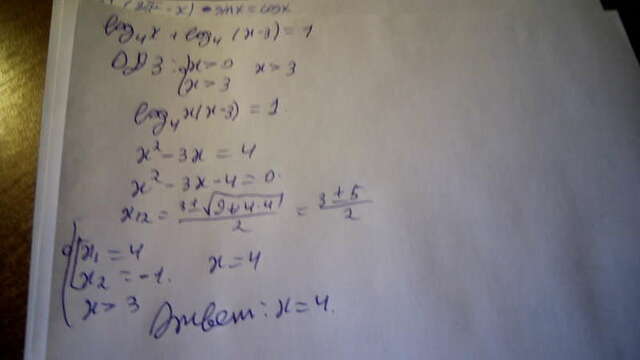 - x) · sinx = cosx
log₄x + log₄(x-3) = 1
ОДЗ: {x>0 x>3
{x>3
log₄x(x-3) = 1.
x² - 3x = 4
x² - 3x - 4 = 0.
x₁₂ = (3±√(9+4·4))/2 = (3±5)/2
x₁ = 4
x₂ = -1. x = 4
x > 3
Ответ: x = 4.